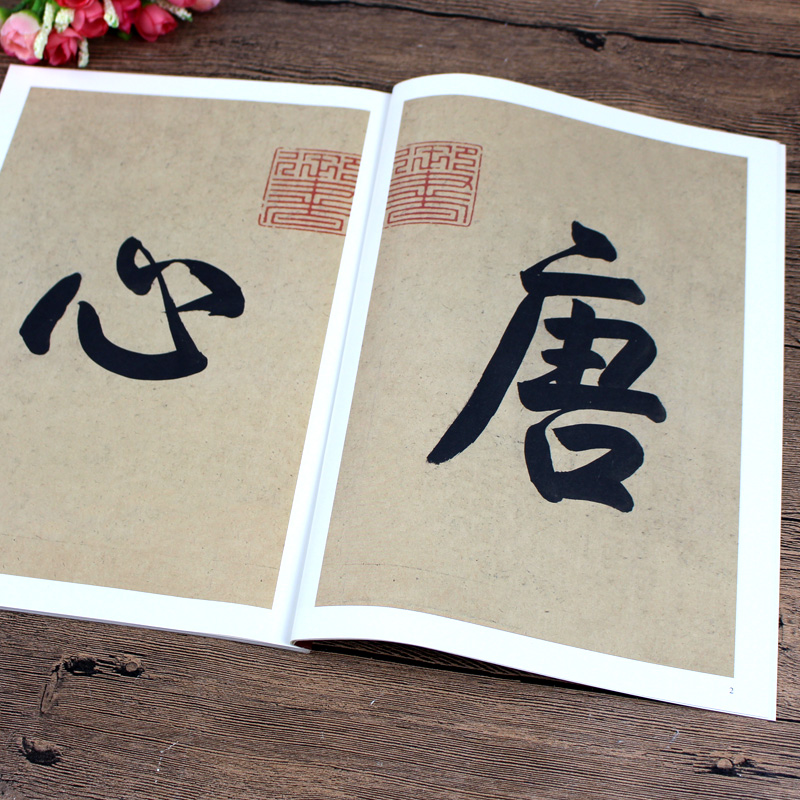 唐
心
2